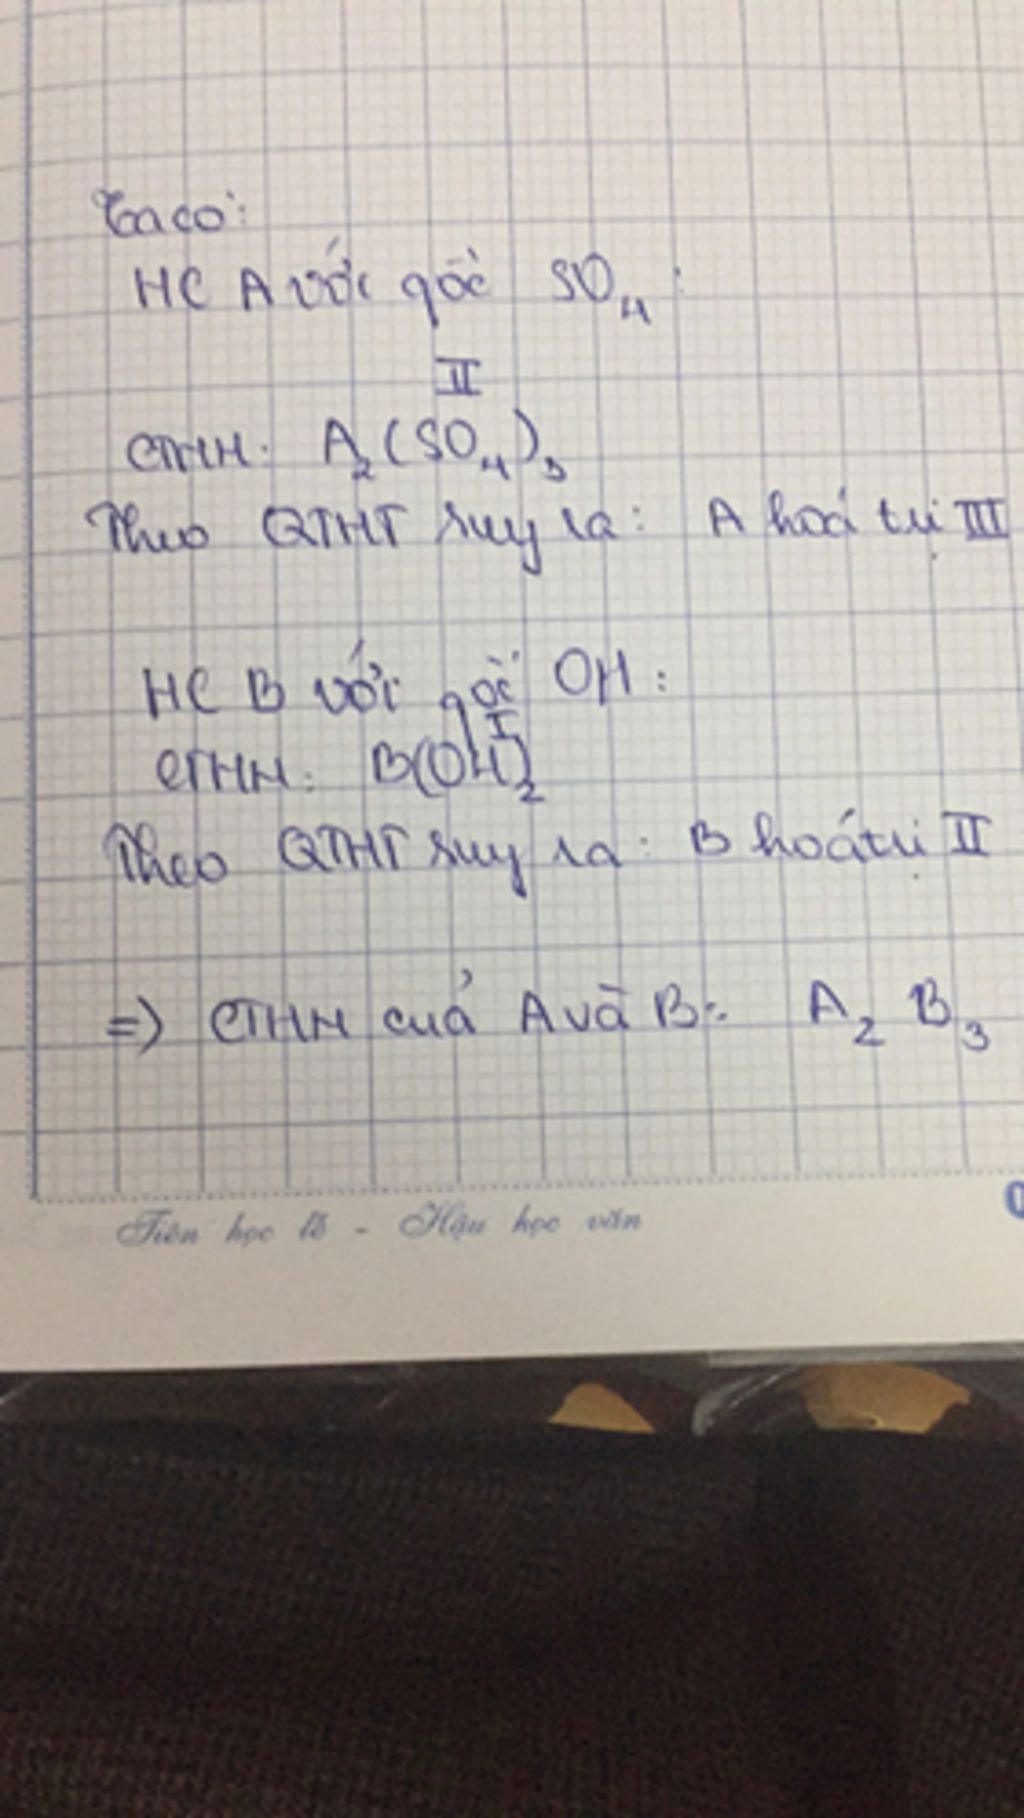 Ta có:
HC A với gốc SO₄ :
II
CTHH: A₂(SO₄)₃
Theo QTHT suy ra: A hoá trị III
HC B với gốc OH :
I
CTHH: B(OH)₂
Theo QTHT suy ra: B hoá trị II
=> CTHH của A và B: A₂ B₃
Tiên học lễ - Hậu học văn
0